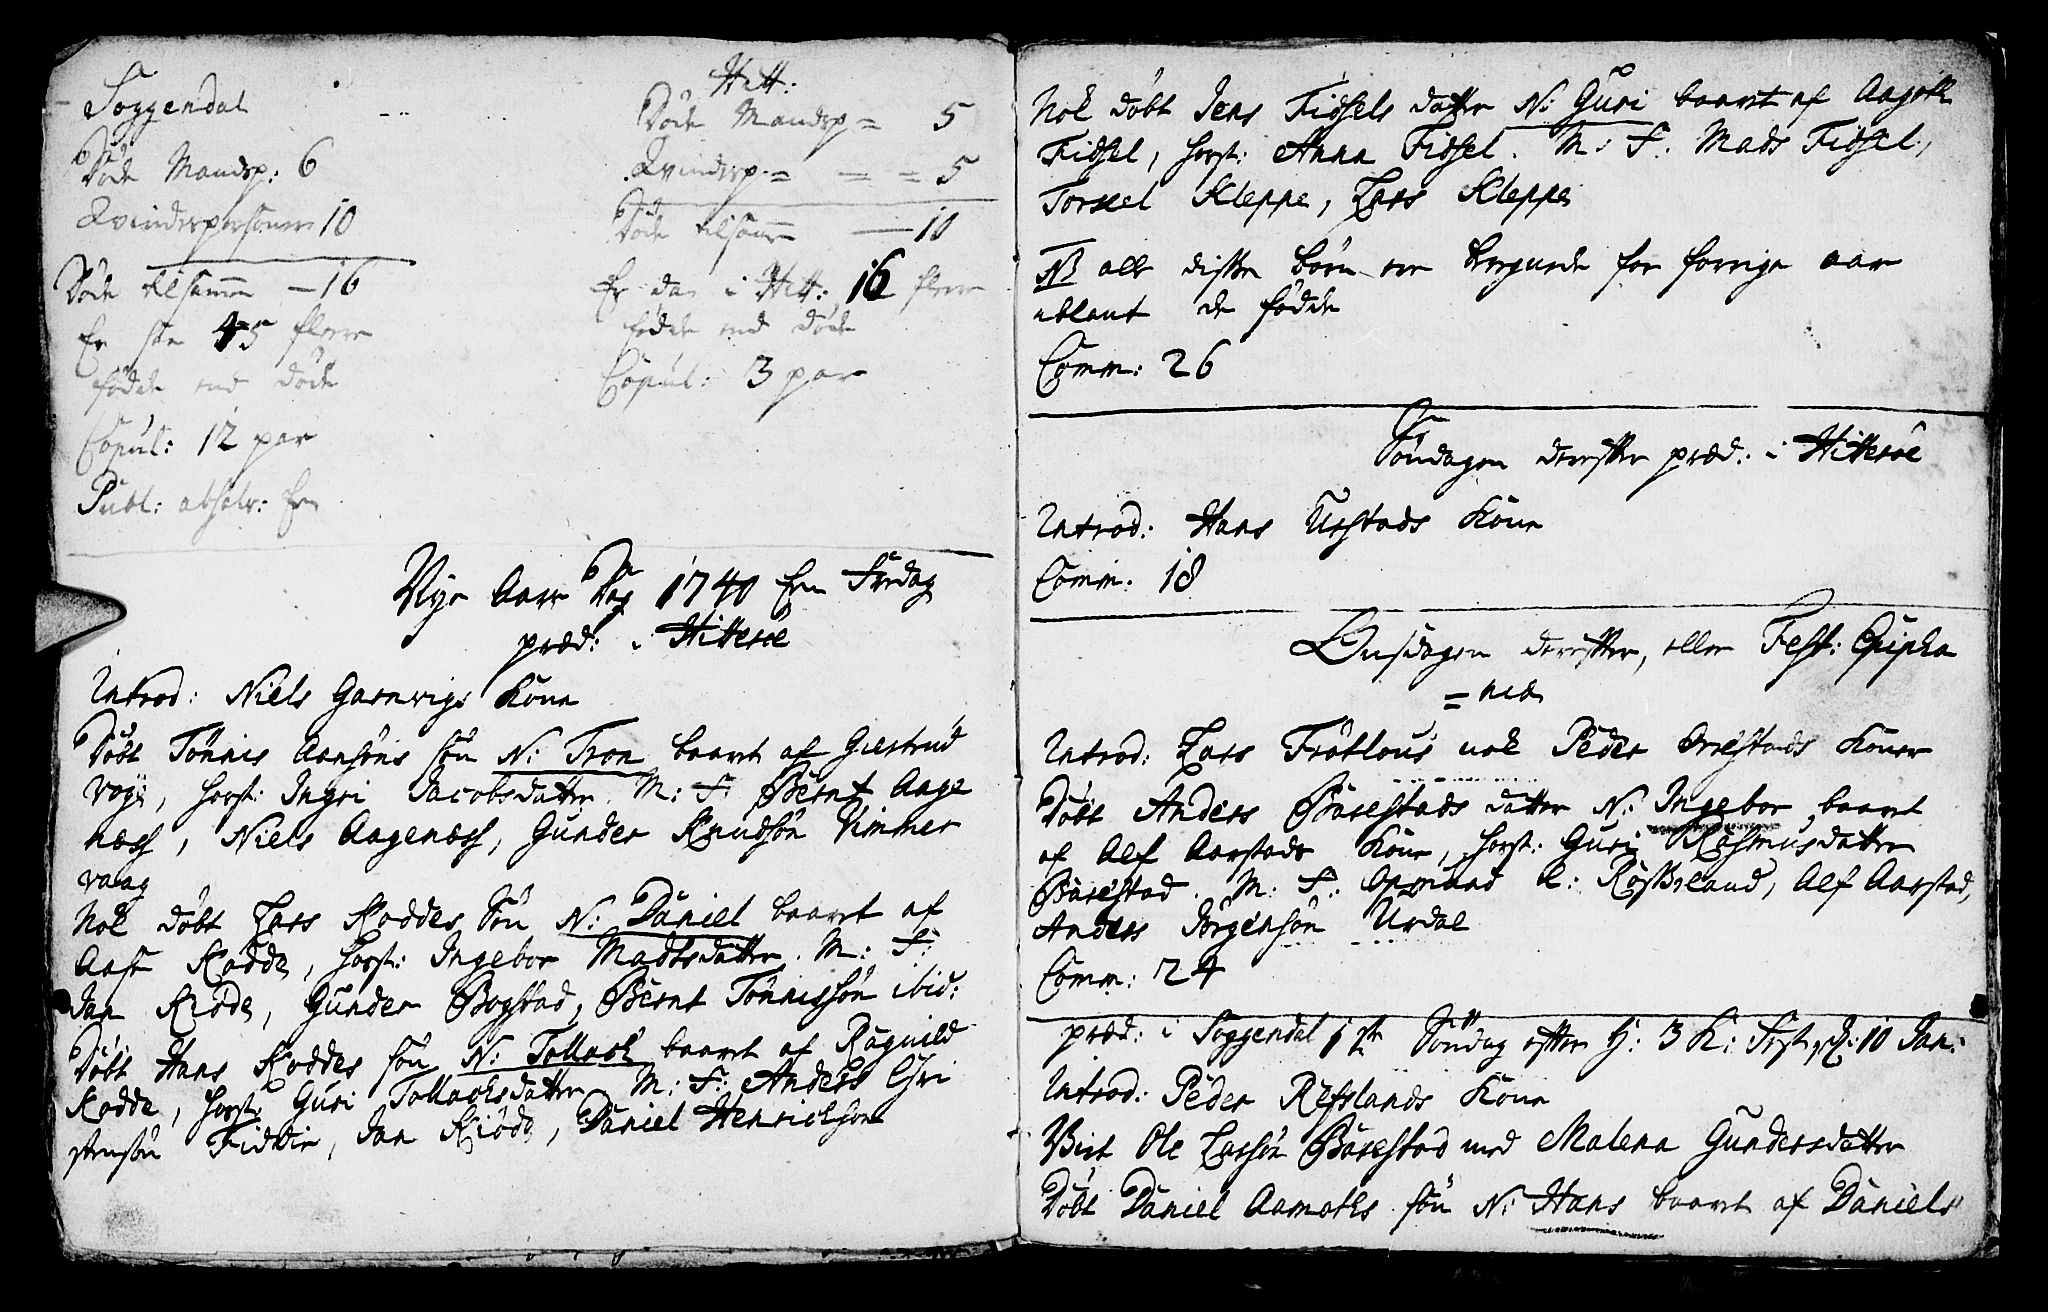 Soggendal
Døde Mandsp: 6
Qvindespersoner 10
Døde tilsamen — 16
Er saa 45 flere
fødde end døde
Copul: 12 par
Publ: absolv: En
Hitt:
Døde Mandsp = 5
Qvindesp = — = 5
Døde tilsamen — 10
Er da i Hitt: 16 flere
fødde end døde
Copul: 3 par
Nye Aars Dag 1740 en Fredag
præd: i Hitterøe
Introd: Niels Garnvigs Kone
Døbt Tønnis Aansøns søn N: Tron baaret af Giertrud
Vøye, horst: Ingri Jacobsdatter. M: F: Bernt Aage
næss, Niels Aagenæss, Gunder Knudsøn Vimmer
vaag
Nok døbt Lars Roddes Søn N: Daniel baaret af
Aase Rodde, horst: Ingebor Madtsdatter. M: F:
Jan Kiøde, Gunder Bogstad, Bernt Tønnissøn ibid:
Døbt Hans Roddes søn N: Tollack baaret af Ragnild
Rodde, horst: Guri Tollacksdatter. M: F: Anders Chri
stensøn Fidkie, Jan Kiøde, Daniel Henrichsøn
Nok døbt Jens Fidsels datter N: Guri baaret af Aagotte
Fidsel, horst: Anna Fidsel. M: F: Mads Fidsel,
Torkel Kleppe, Lars Kleppe
NB alle disse børn ere beregnede for forrige aar
iblant de fødde
Comm: 26
Søndagen derefter præd: i Hitterøe
Introd: Hans Urstads Kone
Comm: 18
Onsdagen derefter, eller Fest: Epipha
= niæ
Introd: Lars Frøtlous nok Peder Orrestads Koner
Døbt Anders Bårestads datter N: Ingebor baaret
af Alf Aarstads Kone, horst: Guri Rasmusdatter
Bårestad. M: F: Osmund L: Røsseland, Alf Aarstad,
Anders Jørgensøn Urdal
Comm: 24
præd: i Soggendal 1ste Søndag efter H: 3 K: Fest, d: 10 Jan:
Introd: Peder Refslands Kone
Viet Ole Larsøn Bårestad med Malena Gundersdatter
Døbt Daniel Aamoths søn N: Hans baaret af Daniels